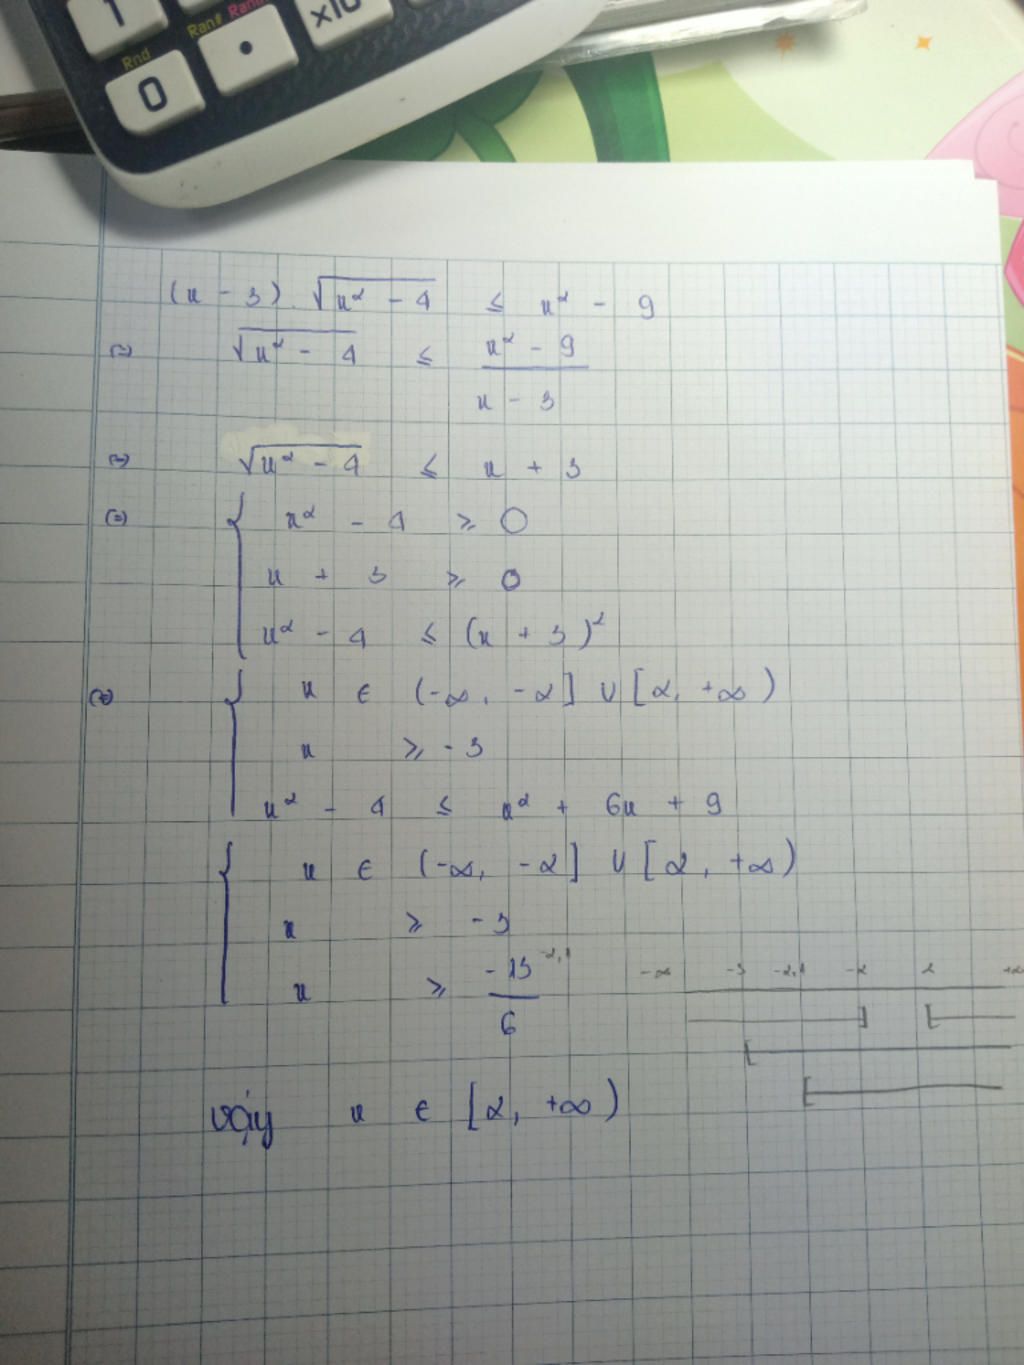 1
Rnd
Ran#
Ran
0
•
×10
(x - 3). √(x² - 4) ≤ x² - 9
(=) √(x² - 4) ≤ (x² - 9)/(x - 3)
(=) √(x² - 4) ≤ x + 3
(=) { x² - 4 ≥ 0
x + 3 ≥ 0
x² - 4 ≤ (x + 3)²
(=) { x ∈ (-∞, -2] ∪ [2, +∞)
x ≥ -3
x² - 4 ≤ x² + 6x + 9
{ x ∈ (-∞, -2] ∪ [2, +∞)
x ≥ -3
x ≥ -13/6 -2,1
-∞ -3 -2,1 -2 2 +∞
vậy x ∈ [2, +∞)